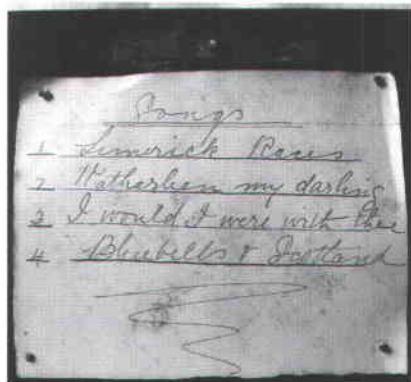 Songs
1 Limerick Races
2 Katharleen my darling
3 I would I were with thee
4 Bluebells & Scotland